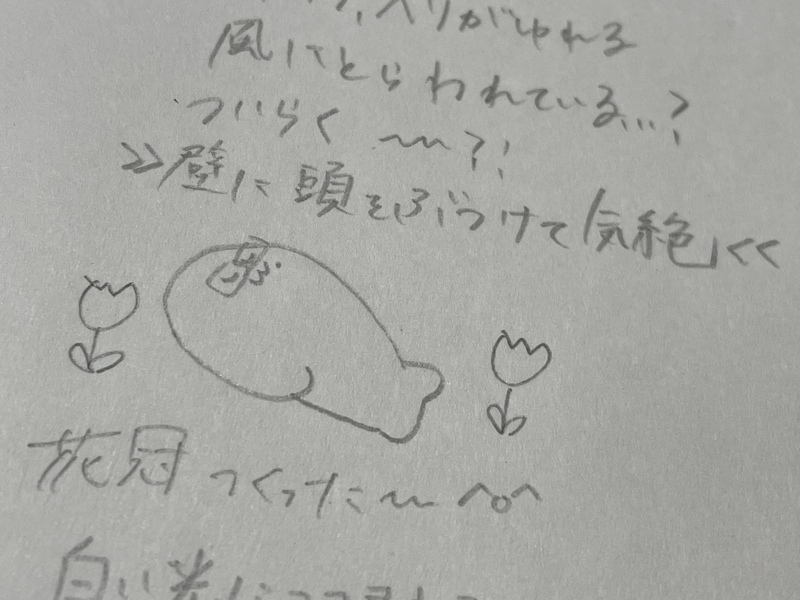 ヘリがゆれる
風にとらわれている...?
ついらく 〜〜?!
>>壁に頭をぶつけて気絶<<
花冠つくった〜 ^o^
白い光に